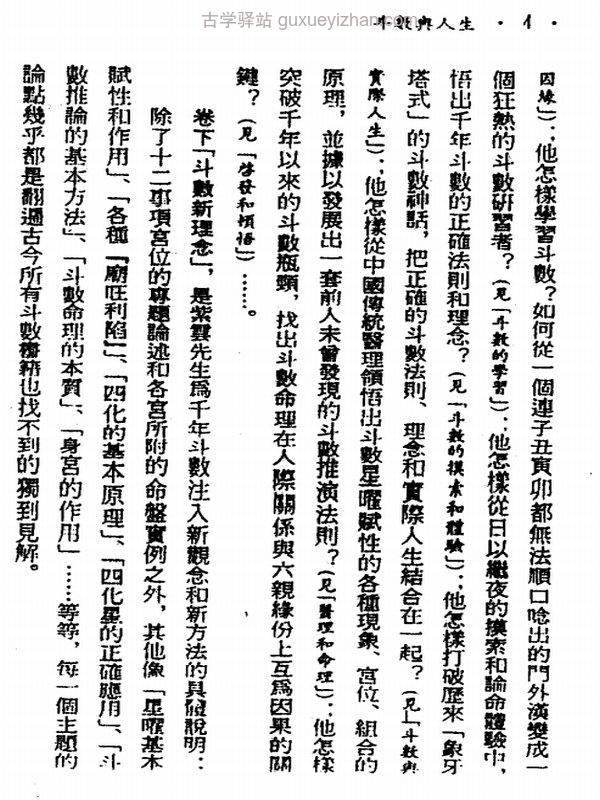 古学驿站 guxueyizhan.com
斗數與人生 ・4・
因緣」);他怎樣學習斗數?如何從一個連子丑寅卯都無法順口唸出的門外漢變成一
個狂熱的斗數研習者?(見「斗數的學習」);他怎樣從日以繼夜的摸索和論命體驗中,
悟出千年斗數的正確法則和理念?(見「斗數的摸索和體驗」);他怎樣打破歷來「象牙
塔式」的斗數神話,把正確的斗數法則、理念和實際人生結合在一起?(見「斗數與
實際人生」);他怎樣從中國傳統醫理領悟出斗數星曜賦性的各種現象、宮位、組合的
原理,並據以發展出一套前人未曾發現的斗數推演法則?(見「醫理和命理」);他怎樣
突破千年以來的斗數瓶頸,找出斗數命理在人際關係與六親緣份上互爲因果的關
鍵?(見「啓發和頓悟」)……。
卷下「斗數新理念」,是紫雲先生爲千年斗數注入新觀念和新方法的具體說明:
除了十二事項宮位的專題論述和各宮所附的命盤實例之外,其他像「星曜基本
賦性和作用」、「各種『廟旺利陷』」、「四化的基本原理」、「四化星的正確應用」、「斗
數推論的基本方法」、「斗數命理的本質」、「身宮的作用」……等等,每一個主題的
論點幾乎都是翻遍古今所有斗數書籍也找不到的獨到見解。